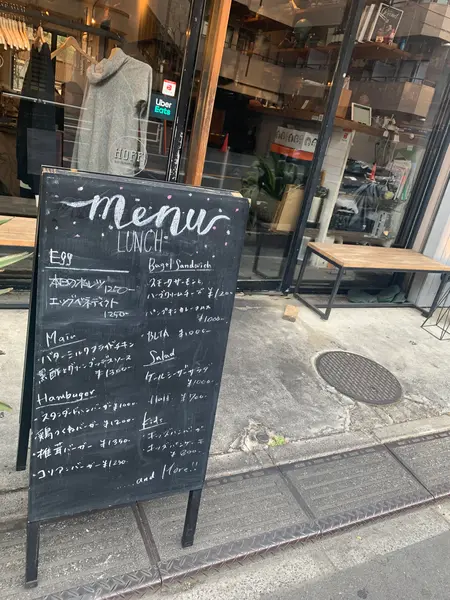 Uber
Eats
menu
LUNCH
Egg
本日のオムレツ 1200-
エッグベネディクト
1250-
Main
バターミルクフライドチキン
¥1300-
Hamburger
・スタンダードハンバーガー ¥1000-
・鶏つくねバーガー ¥1200-
・椎茸バーガー ¥1350-
・コリアンバーガー ¥1250-
Bagel Sandwich
・スモークサーモンと
ハーブクリームチーズ ¥1200-
¥1000-
・BLTA ¥1000-
Salad
・ケールシーザーサラダ
¥1000-
・Half ¥700-
Kids
・キッズハンバーガー
・キッズパンケーキ
¥800-
...and More!!